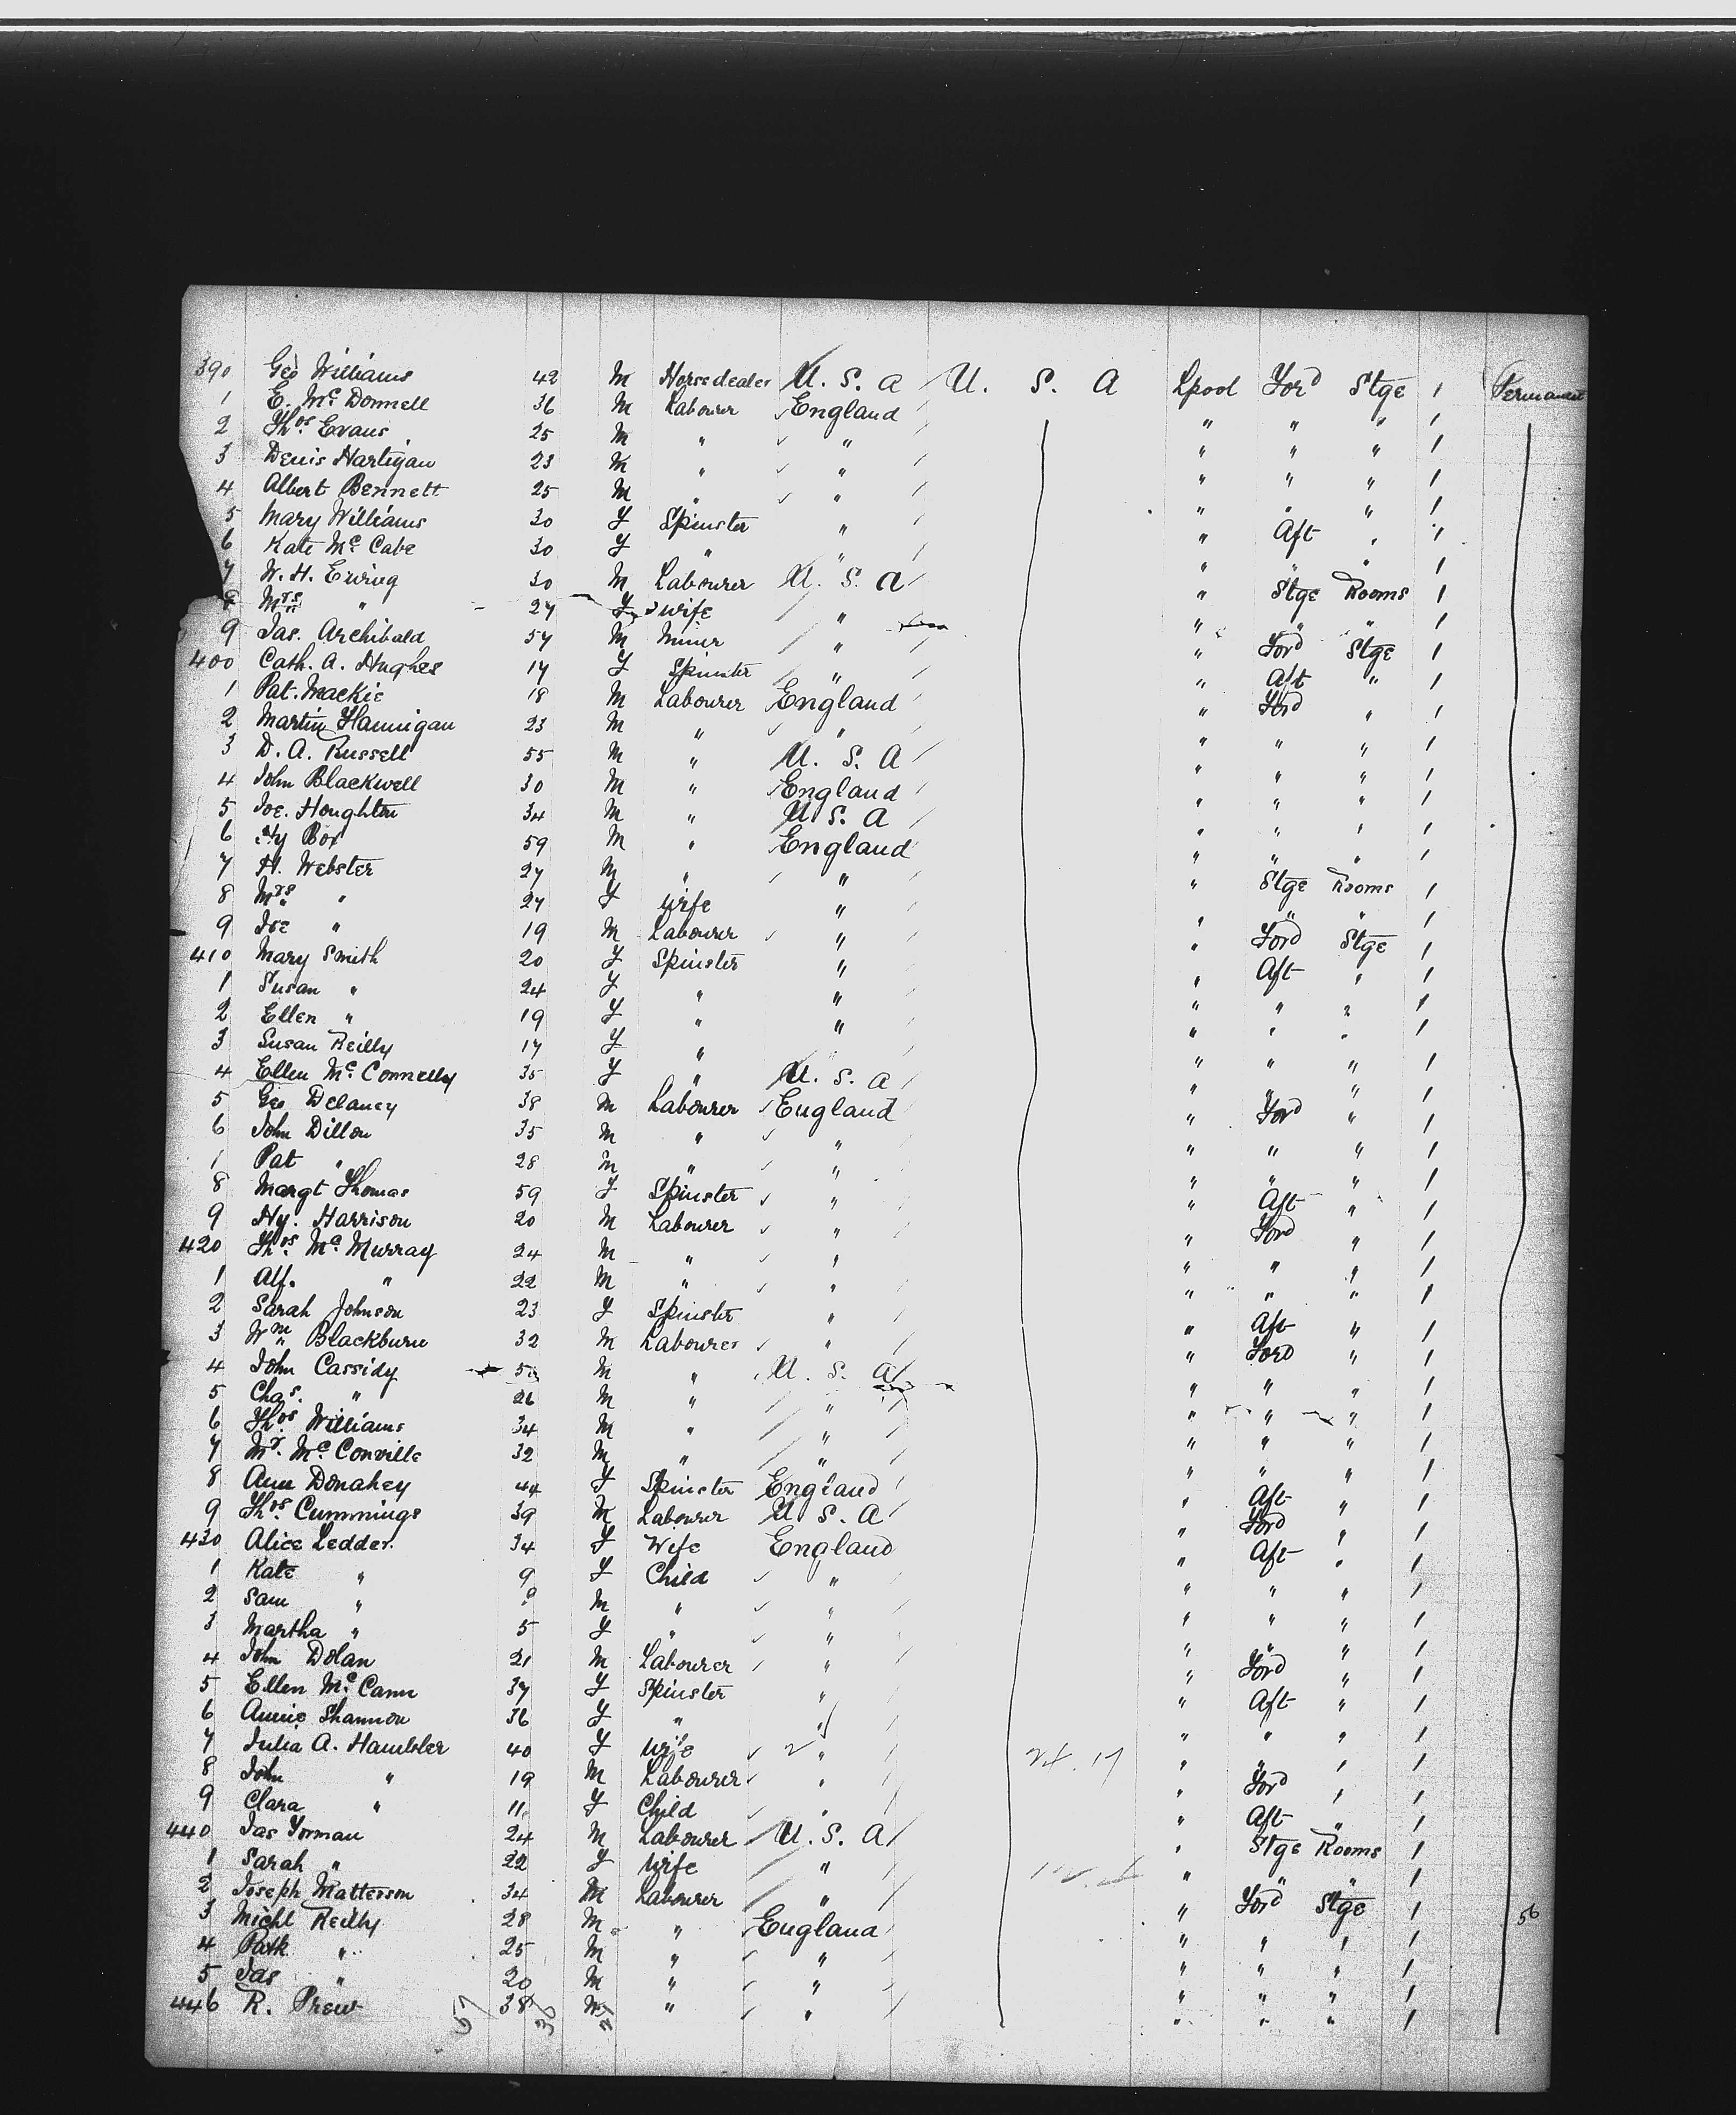 390 Geo Williams 42 M Horsedealer U. S. A U. S. A Lpool Ford Stge 1 Permanent
1 E. Mc Donnell 36 M Labourer England " " " 1
2 Thos Evans 25 M " " " " " 1
3 Denis Hartigan 23 M " " " " " 1
4 Albert Bennett 25 M " " " " " 1
5 Mary Williams 30 F Spinster " " Aft " 1
6 Kate Mc Cabe 30 F " " " " " 1
7 W. H. Ewing 30 M Labourer U. S. A " Stge Rooms 1
8 Mrs " 27 F wife " " " " 1
9 Jas. Archibald 57 M Miner " " Ford Stge 1
400 Cath. A. Hughes 17 F Spinster " " Aft " 1
1 Pat. Mackie 18 M Labourer England " Ford " 1
2 Martin Hannigan 23 M " " " " " 1
3 D. A. Russell 55 M " U. S. A " " " 1
4 John Blackwell 30 M " England " " " 1
5 Joe. Houghton 34 M " U. S. A " " " 1
6 Hy Box 59 M " England " " " 1
7 H. Webster 27 M " " " Stge Rooms 1
8 Mrs " 27 F wife " " " " 1
9 Joe " 19 M Labourer " " Ford Stge 1
410 Mary Smith 20 F Spinster " " Aft " 1
1 Susan " 24 F " " " " " 1
2 Ellen " 19 F " " " " " 1
3 Susan Reilly 17 F " " " " " 1
4 Ellen Mc Connelly 35 F " U. S. A " " " 1
5 Geo Delaney 38 M Labourer England " Ford " 1
6 John Dillon 35 M " " " " " 1
7 Pat " 28 M " " " " " 1
8 Margt Thomas 59 F Spinster " " Aft " 1
9 Hy. Harrison 20 M Labourer " " Ford " 1
420 Thos Mc Murray 24 M " " " " " 1
1 Alf. " 22 M " " " " " 1
2 Sarah Johnson 23 F Spinster " " Aft " 1
3 Wm Blackburn 32 M Labourer " " Ford " 1
4 John Cassidy M " U. S. A " " " 1
5 Chas. " 26 M " " " " " 1
6 Thos Williams 34 M " " " " " 1
7 Mr. Mc Conville 32 M " " " " " 1
8 Ann Donahey 44 F Spinster England " Aft " 1
9 Thos Cummings 39 M Labourer U. S. A " Ford " 1
430 Alice Ledder. 34 F Wife England " Aft " 1
1 Kate " 9 F Child " " " " 1
2 Sam " M " " " " " 1
3 Martha " 5 F " " " " " 1
4 John Dolan 21 M Labourer " " Ford " 1
5 Ellen Mc Cann 37 F Spinster " " Aft " 1
6 Annie Shannon 36 F " " " " " 1
7 Julia A. Hambler 40 F Wife " " " " 1
8 John " 19 M Labourer " " Ford " 1
9 Clara " 11 F Child " " Aft " 1
440 Jas Forman 24 M Labourer U. S. A " Stge Rooms 1
1 Sarah " 22 F Wife " " " " 1
2 Joseph Matterson 34 M Labourer " " Ford Stge 1
3 Michl Reilly 28 M " England " " " 1 56
4 Patk " 25 M " " " " " 1
5 Jas " 20 M " " " " " 1
446 R. Prew 38 M " " " " " 1